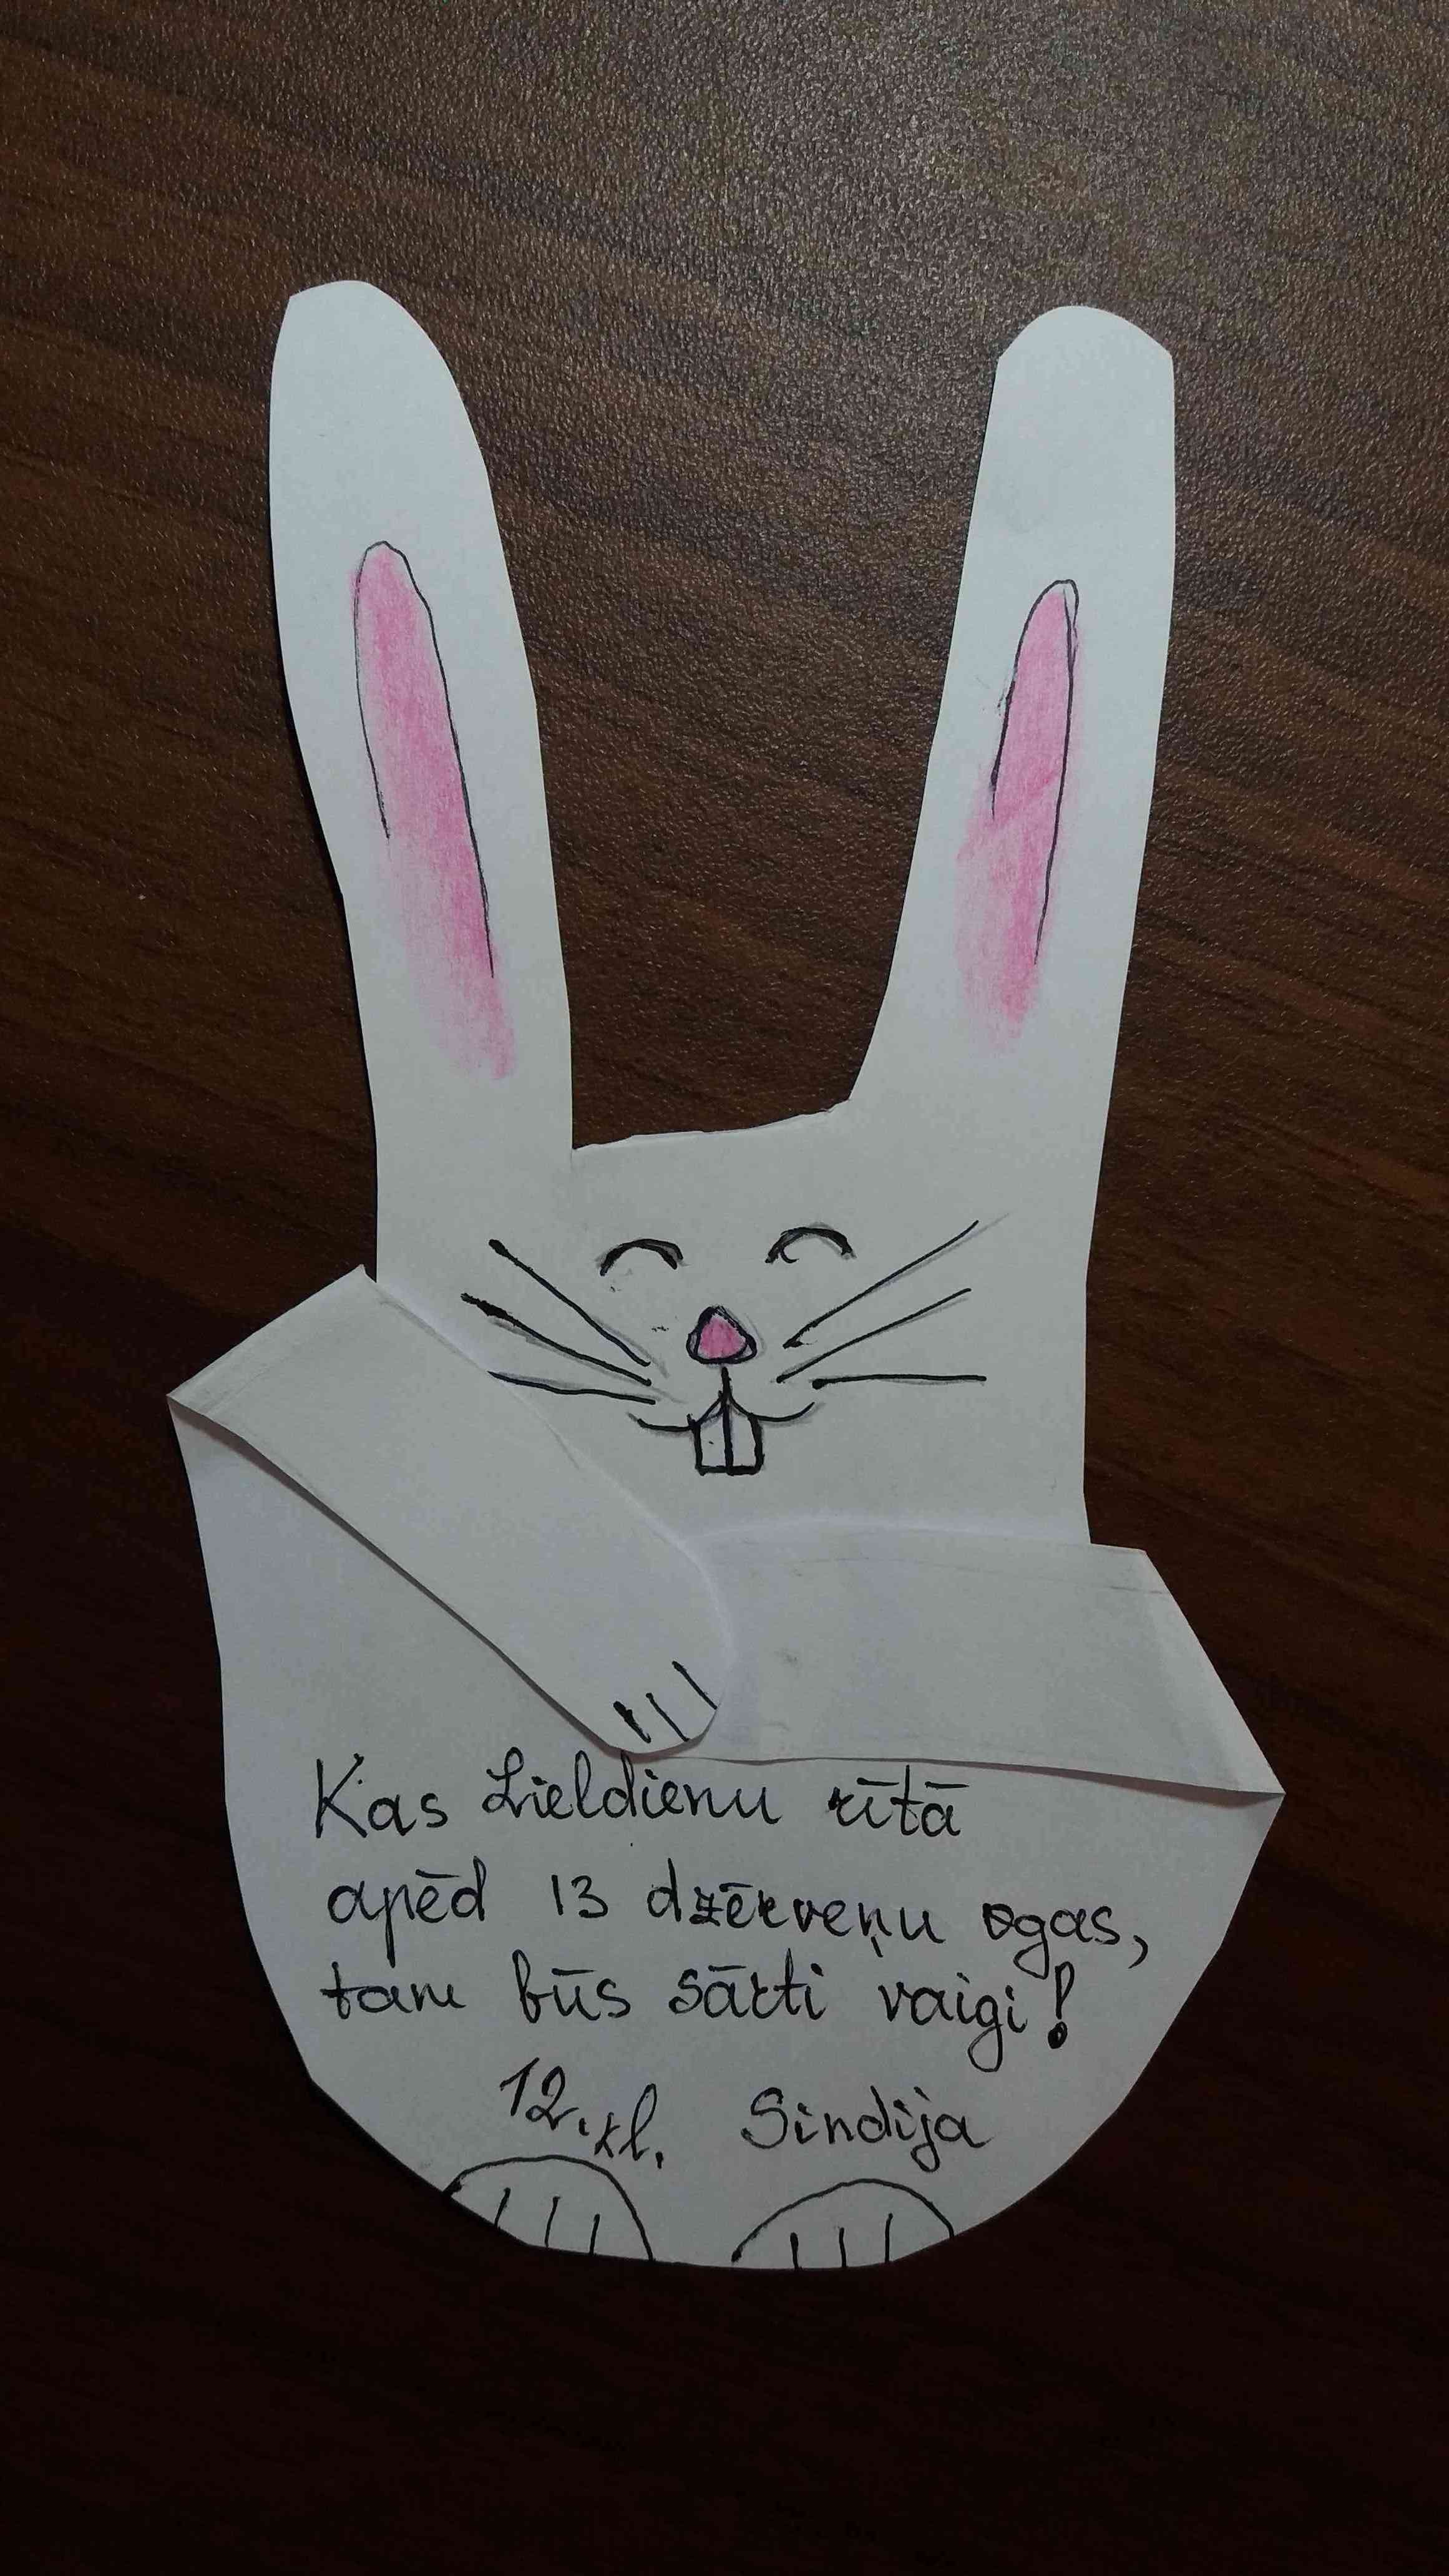 Kas Lieldienu rītā
apēd 13 dzērveņu ogas,
tam būs sārti vaigi!
12.kl. Sindija